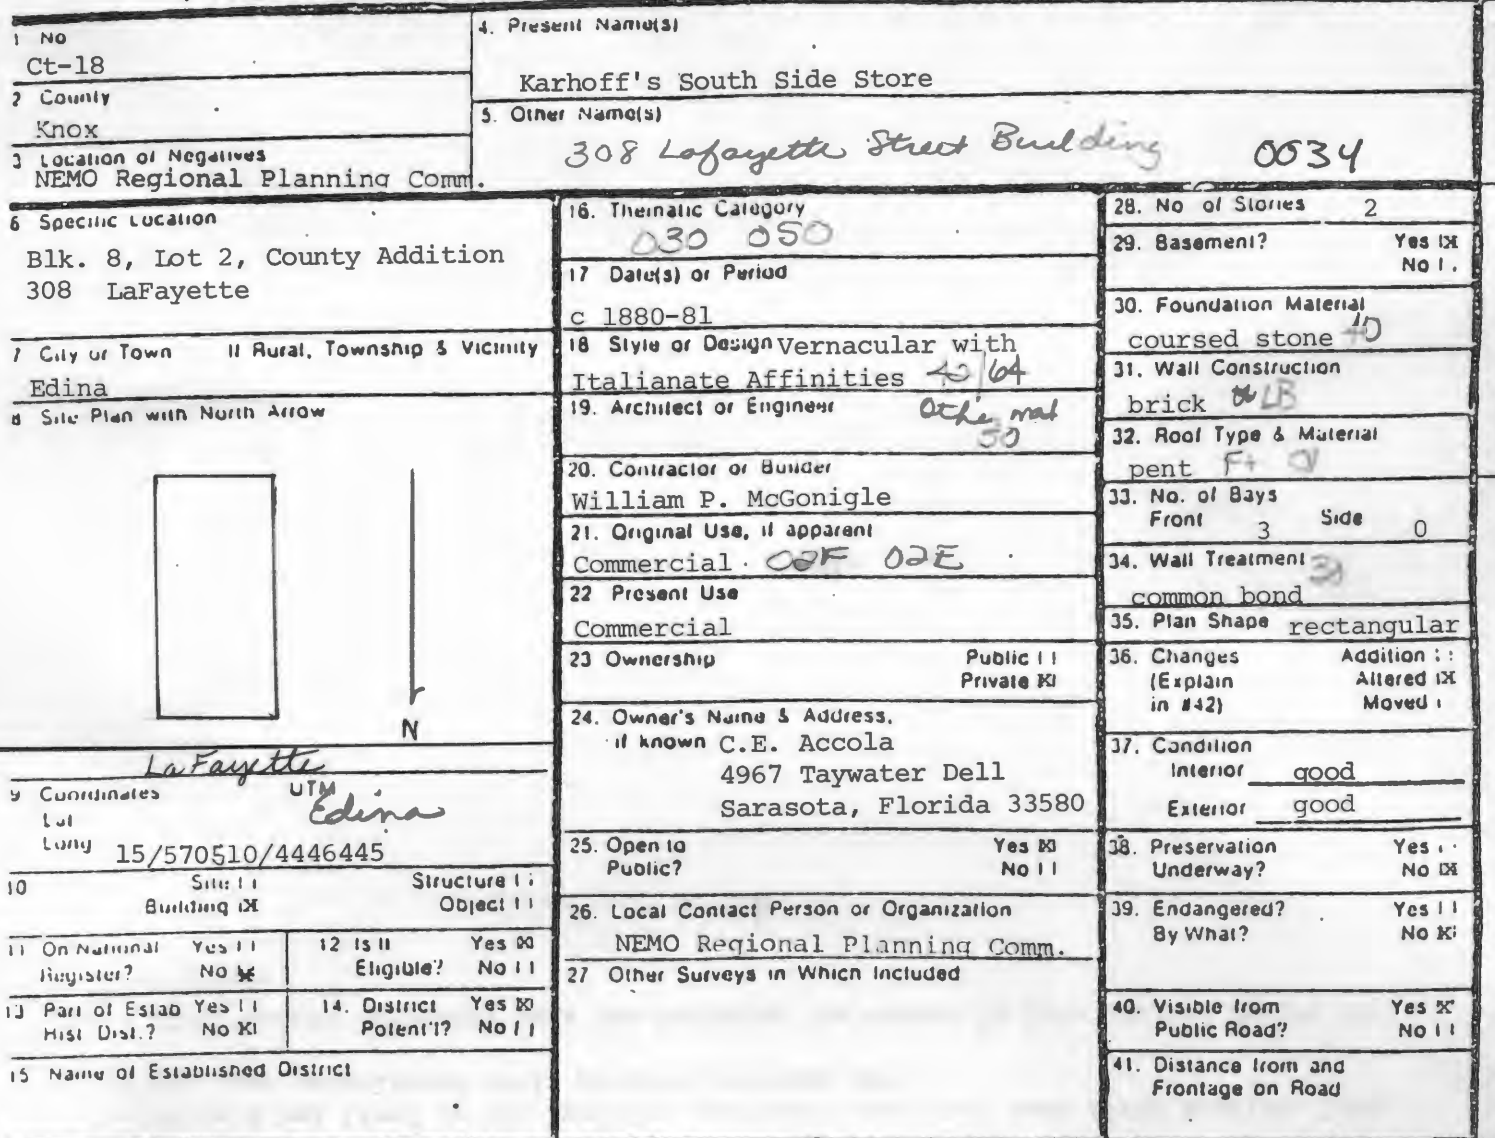 1 No
Ct-18
2 County
Knox
3 Location of Negatives
NEMO Regional Planning Comm.
4. Present Name(s)
Karhoff's South Side Store
5. Other Name(s)
308 Lafayette Street Building 0034
6 Specific Location
Blk. 8, Lot 2, County Addition
308 LaFayette
7 City or Town If Rural, Township & Vicinity
Edina
8 Site Plan with North Arrow
N
LaFayette
9 Coordinates UTM
Lat Edina
Long 15/570510/4446445
10 Site Structure
Building [X] Object
11 On National Yes
Register? No [X]
12 Is It Yes [X]
Eligible? No
13 Part of Estab Yes
Hist Dist.? No [X]
14. District Yes [X]
Potent'l? No
15 Name of Established District
16. Thematic Category
030 050
17 Date(s) or Period
c 1880-81
18 Style or Design Vernacular with
Italianate Affinities 64
19. Architect or Engineer
50
20. Contractor or Builder
William P. McGonigle
21. Original Use, if apparent
Commercial 02F 02E
22 Present Use
Commercial
23 Ownership Public
Private [X]
24. Owner's Name & Address,
if known C.E. Accola
4967 Taywater Dell
Sarasota, Florida 33580
25. Open to Yes [X]
Public? No
26. Local Contact Person or Organization
NEMO Regional Planning Comm.
27 Other Surveys in Which Included
28. No of Stories 2
29. Basement? Yes [X]
No
30. Foundation Material
coursed stone 40
31. Wall Construction
brick LB
32. Roof Type & Material
pent
33. No. of Bays
Front 3 Side 0
34. Wall Treatment
common bond
35. Plan Shape rectangular
36. Changes Addition
(Explain Altered [X]
in #42) Moved
37. Condition
Interior good
Exterior good
38. Preservation Yes
Underway? No [X]
39. Endangered? Yes
By What? No [X]
40. Visible from Yes [X]
Public Road? No
41. Distance from and
Frontage on Road